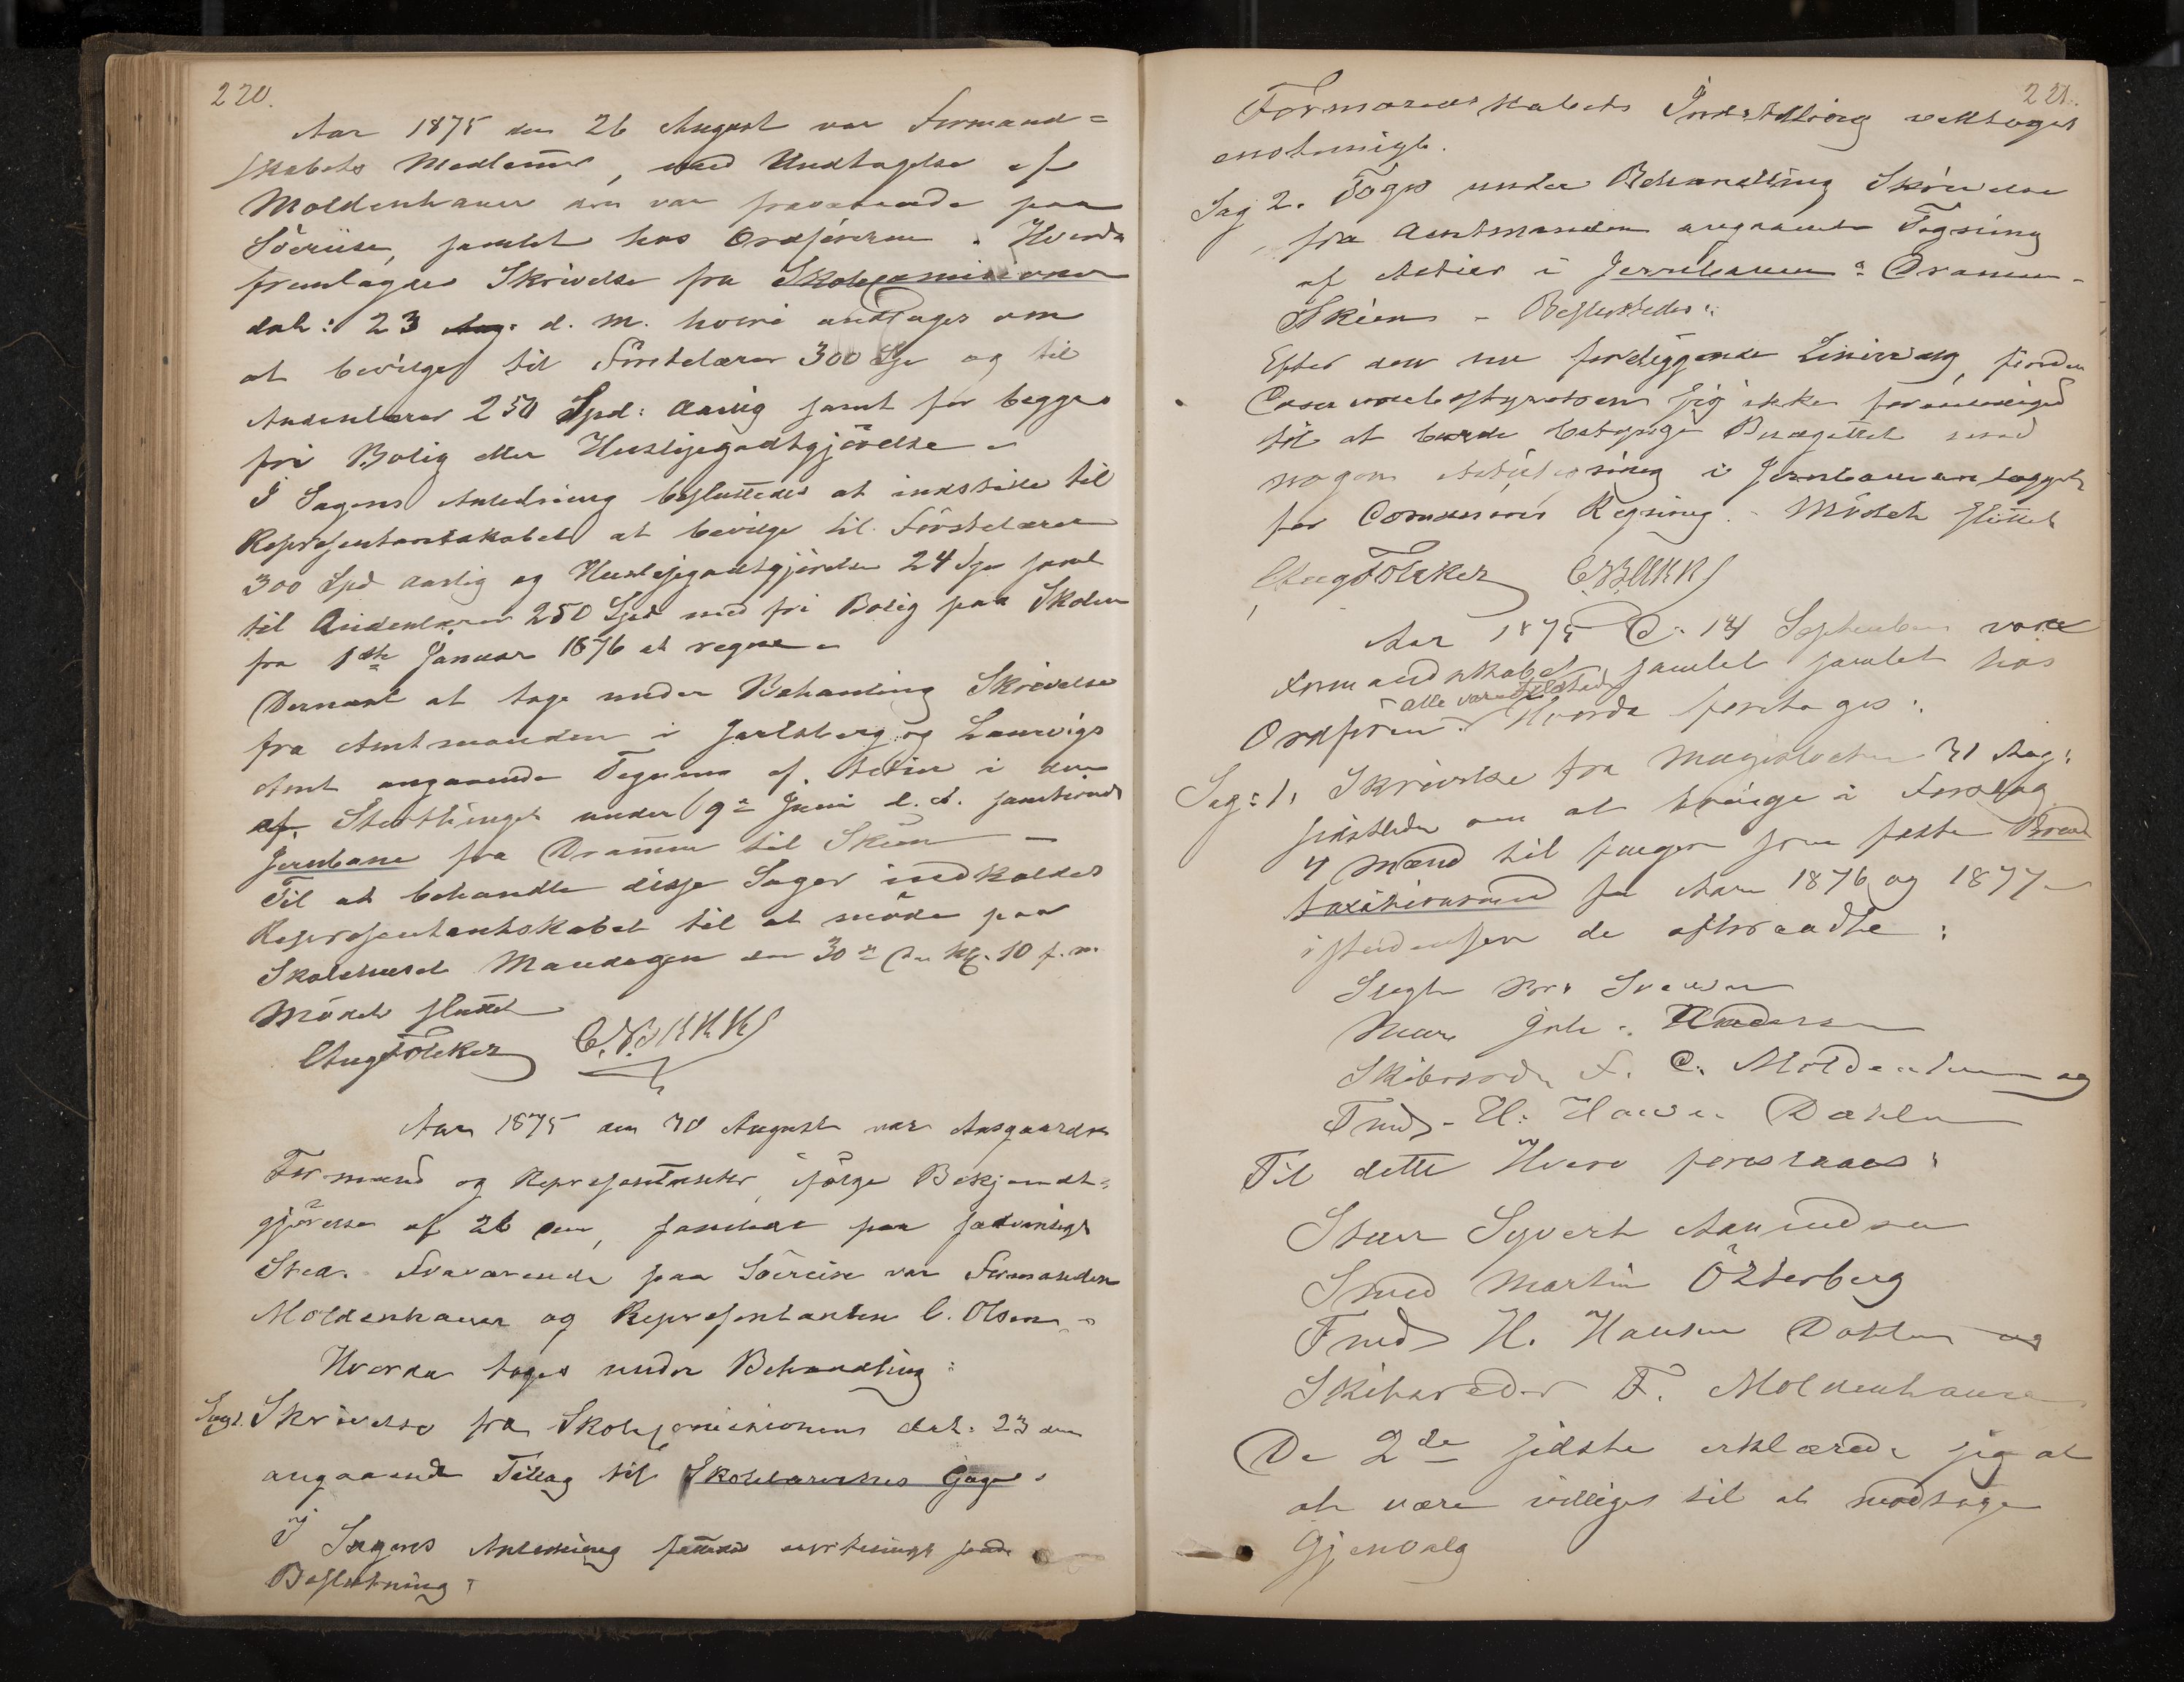 220.
Aar 1875 den 26 August var Formand=
skabets Medlemmer, med Undtagelse af
Moldenhauer som var fraværende paa
Söreise, samlet hos Ordföreren. Hvorda
fremlagdes Skrivelse fra Skolecomissionen
dat: 23 Aug: d. M. hvori andrages om
at bevilges til Förstelærer 300 Spd og til
Andenlærer 250 Spd: aarlig samt for begge
fri Bolig eller Huslejegodtgjörelse -
I Sagens Anledning besluttedes at indstille til
Repræsentantskabet at bevilge til Förstelærer
300 Spd aarlig og Huslejegodtgjörelse 24 Spd samt
til Andenlærer 250 Spd med fri Bolig paa Skolen
fra 1ste Januar 1876 at regne -
Dernæst at tage under Behandling Skrivelse
fra Amtmanden i Jarlsberg og Laurvigs
Amt angaaende Tegning af Actier i den
af Storthinget under 9de Juni d. A. sanctionerede
Jernbane fra Drammen til Skien -
Til at behandle disse Sager indkaldes
Repræsentantskabet til at möde paa
Skolehuset Mandagen den 30te ds Kl. 10 f. m.
Mödet sluttet
Aug Fölcker C. N. BAKKE
Aar 1875 den 30 August var Aasgaards
Formænd og Repræsentanter, ifölge Bekjendt=
gjörelse af 26 ds, samlede paa sædvanligt
Sted. Fraværende paa Söreise var Formanden
Moldenhauer og Repræsentanten C. Olsen -
Hvorda toges under Behandling:
Sag 1. Skrivelse fra Skolecomissionen dat: 23 ds
angaaende Tillæg til Skolelærernes Gage.
I Sagens Anledning fattedes eenstemmigt saadan
Beslutning:
221.
Formandskabets Indstilling vedtoges
enstemmigt.
Sag 2. Toges under Behandling Skrivelse
fra Amtmanden angaaende Tegning
af Actier i Jernbanen: Drammen -
Skien - Besluttedes:
Efter den nu foreliggende Linie finder
Communebestyrelsen sig ikke foranlediget
til at burde betynge Budgettet med
nogen Actietegning i Jernbaneanlægget
for Communens Regning. - Mödet sluttet
Aug Fölcker C. N. BAKKE
Aar 1875 D. 14 September var
Formandskabet samlet samlet hos
alle vare tilstede
Ordföreren. Hvorda foretoges:
Sag: 1. Skrivelse fra Magistraten 31 Aug:
sidstleden om at bringe i Forslag
4 Mænd til fungere som faste Brand
taxationsmænd for Aare 1876 og 1877 -
istedenfor de aftraadte:
Slagter Svensen
Murer Joh. Andersen
Skibsreder F. C. Moldenhauer og
Smed - H. Hansen Dahlen
Til dette Hverv foreslaaes:
Styrm Syvert Amundsen
Smed Martin Österberg
Smed H. Hansen Dahlen og
Skibsreder F. Moldenhauer
De 2de sidste erklærede sig at
at være villige til at modtage
Gjenvalg